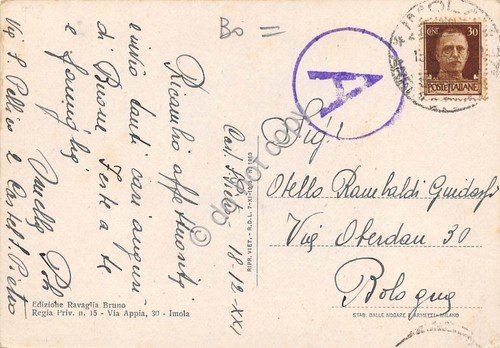 Bo =
IMOLA
CENT. 30
POSTE ITALIANE
A
Ricambio affettuosità
invio tanti cari auguri
di Buone Feste a te
e famiglia
Via S. Pellico 2 Castel S. Pietro
Cast. S. Pietro 18-12-XXI
Sig!
Otello Rambaldi Guidasci
Via Oberdan 30
Bologna
delcampe copy
Edizione Ravaglia Bruno
Regia Priv. n. 15 - Via Appia, 30 - Imola
RIPR. VIET. - R.D.L. 7-XI-
STAB. DALLE NOGARE E ARMETTI - MILANO